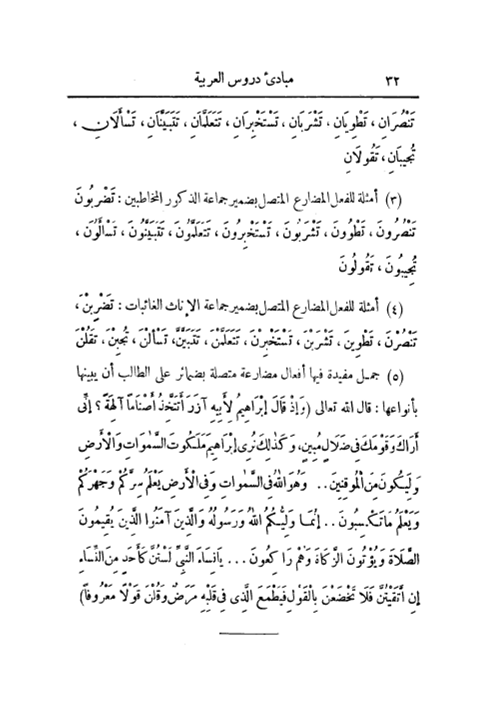 ٣٢ مبادئ دروس العربية
تَنْصُرَانِ ، تَطْوِيَانِ ، تَشْرَبَانِ ، تَسْتَخْبِرَانِ ، تَتَعَلَّمَانِ ، تَتَبَيَّنَانِ ، تَسْأَلَانِ ،
تُجِيبَانِ ، تَقُولَانِ
(٣) أمثلة للفعل المضارع المتصل بضمير جماعة الذكور المخاطبين : تَضْرِبُونَ
تَنْصُرُونَ ، تَطْوُونَ ، تَشْرَبُونَ ، تَسْتَخْبِرُونَ ، تَتَعَلَّمُونَ ، تَتَبَيَّنُونَ ، تَسْأَلُونَ ،
تُجِيبُونَ ، تَقُولُونَ
(٤) أمثلة للفعل المضارع المتصل بضمير جماعة الإناث الغائبات : تَضْرِبْنَ ،
تَنْصُرْنَ ، تَطْوِينَ ، تَشْرَبْنَ ، تَسْتَخْبِرْنَ ، تَتَعَلَّمْنَ ، تَتَبَيَّنَّ، تَسْأَلْنَ ، تُجِبْنَ ، تَقُلْنَ
(٥) جمل مفيدة فيها أفعال مضارعة متصلة بضمائر على الطالب أن يبينها
بأنواعها : قال الله تعالى (وَإِذْ قَالَ إِبْرَاهِيمُ لِأَبِيهِ آزَرَ أَتَتَّخِذُ أَصْنَاماً آلِهَةً ؟ إِنِّى
أَرَاكَ وَقَوْمَكَ فِى ضَلَالٍ مُبِينٍ، وَكَذٰلِكَ نُرِى إِبْرَاهِيمَ مَلَكُوتَ السَّمٰوَاتِ وَالْأَرْضِ
وَلِيَكُونَ مِنَ الْمُوقِنِينَ .. وَهُوَ اللهُ فِى السَّمٰوَاتِ وَفِى الْأَرْضِ يَعْلَمُ سِرَّكُمْ وَجَهْرَكُمْ
وَيَعْلَمُ مَا تَكْسِبُونَ .. إِنَّمَا وَلِيُّكُمُ اللهُ وَرَسُولُهُ وَالَّذِينَ آمَنُوا الَّذِينَ يُقِيمُونَ
الصَّلَاةَ وَيُؤْتُونَ الزَّكَاةَ وَهُمْ رَاكِعُونَ ... يَانِسَاءَ النَّبِىِّ لَسْتُنَّ كَأَحَدٍ مِنَ النِّسَاءِ
إِنِ اتَّقَيْتُنَّ فَلَا تَخْضَعْنَ بِالْقَوْلِ فَيَطْمَعَ الَّذِى فِى قَلْبِهِ مَرَضٌ وَقُلْنَ قَوْلًا مَعْرُوفاً)